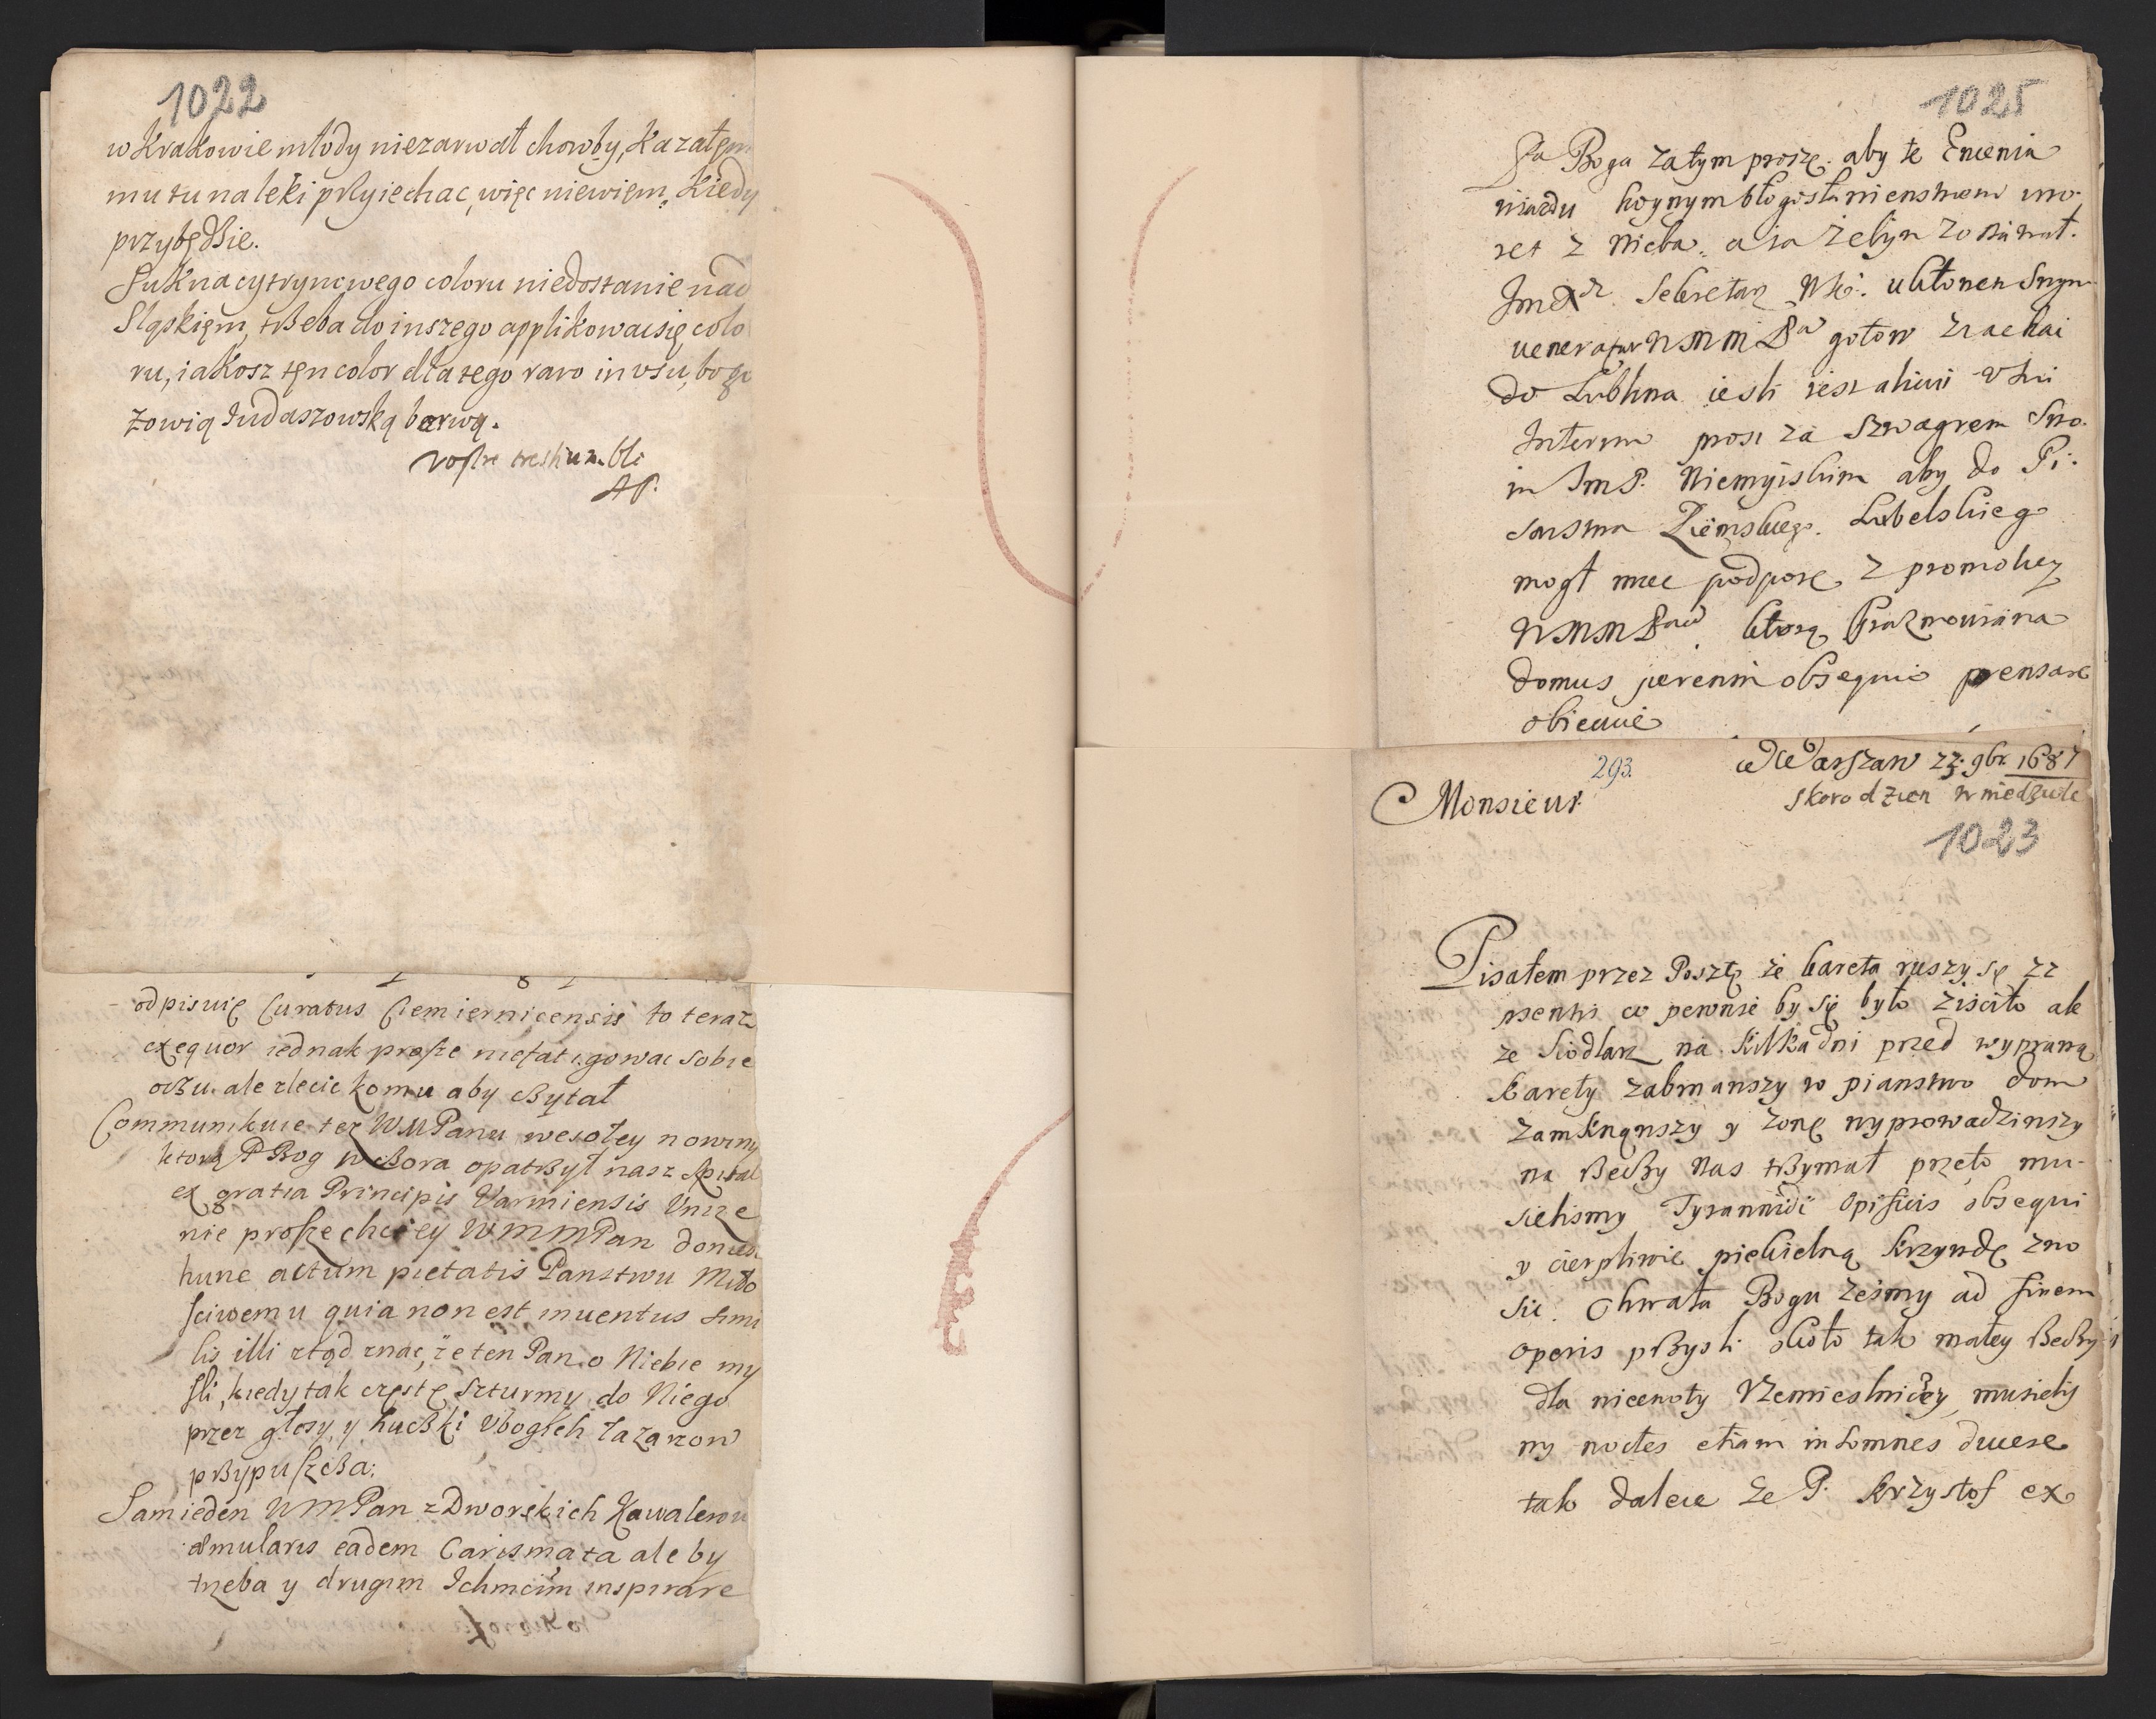 1022
w Krakowie młody niezarwał choroby, kazałem
mu tu na leki przyiechac, więc niewiem, kiedy
przybędzie.
Sukna cytrynowego coloru niedostanie nad
Sląskięm, trzeba do inszego applikowac się colo
ru, iakosz tęn color dla tego raro in usu, bo go
zowią Judaszowską barwą.
Vostre tres humble
AP.
odpisuię Curatus Ciemiernicensis to teraz
exequor iednak proszę niefatigowac sobie
oczu. ale zlecic komu aby czytał
Communikuie tez WMPanu wesołey nowiny
ktorą P Bog wczora opatrzył nasz szpital
ex gratia Principis Varmiensis Unize
nie proszę chciey WMMPan doniesc
hunc actum pietatis Panstwu Miło
sciwemu quia non est inuentus simi
lis illi ztąd znac, że ten Pan o Niebie my
sli, kiedy tak częste szturmy do Niego
przez głosy, y huczki Ubogich Łazarzow
przypuszcza:
Sam ieden WMPan z Dworskich Kawalerow
æmularis eadem Carismata ale by
trzeba y drugim Ichmcim inspirare
1025
Pa Boga zatym proszę aby te Encenia
hoynym błogosławienstwem
z Nieba, a ia żebym
Sekretarz
veneratur WMMPa gotow
do Lublina iesli iest
Interim prosi za szwagrem swo
im ImP. Niemyiskim aby do Pi
sarstwa Ziemskiego Lubelskiego
mogł miec podporę z promotiey
WMMPana ktorą
domus perenni obsequio pensare
obiecuie
293
w Warszaw 22. 9br. 1687
skoro dzien w niedziele
Monsieur
1023
Pisałem przez Posztę że kareta ruszy się 22
psentis co pewnie by się było ziściło ale
ze siodlarz na kilkadni przed wyprawą
karety zabrnąwszy w pianstwo dom
zamknąwszy y żonę wyprowadziwszy
na Beczy nas trzymał przeto mu-
sielismy Tyrannidi opificis obsequi
y cierpliwie piekielną krzywdę zno
sic. Chwała Bogu żesmy ad finem
operis przyszli około tak małey Beczy
dla niecnoty Rzemieslniczey, musieliś
my noctes etiam insomnes ducere
tak dalece że P. Krzysztof ex